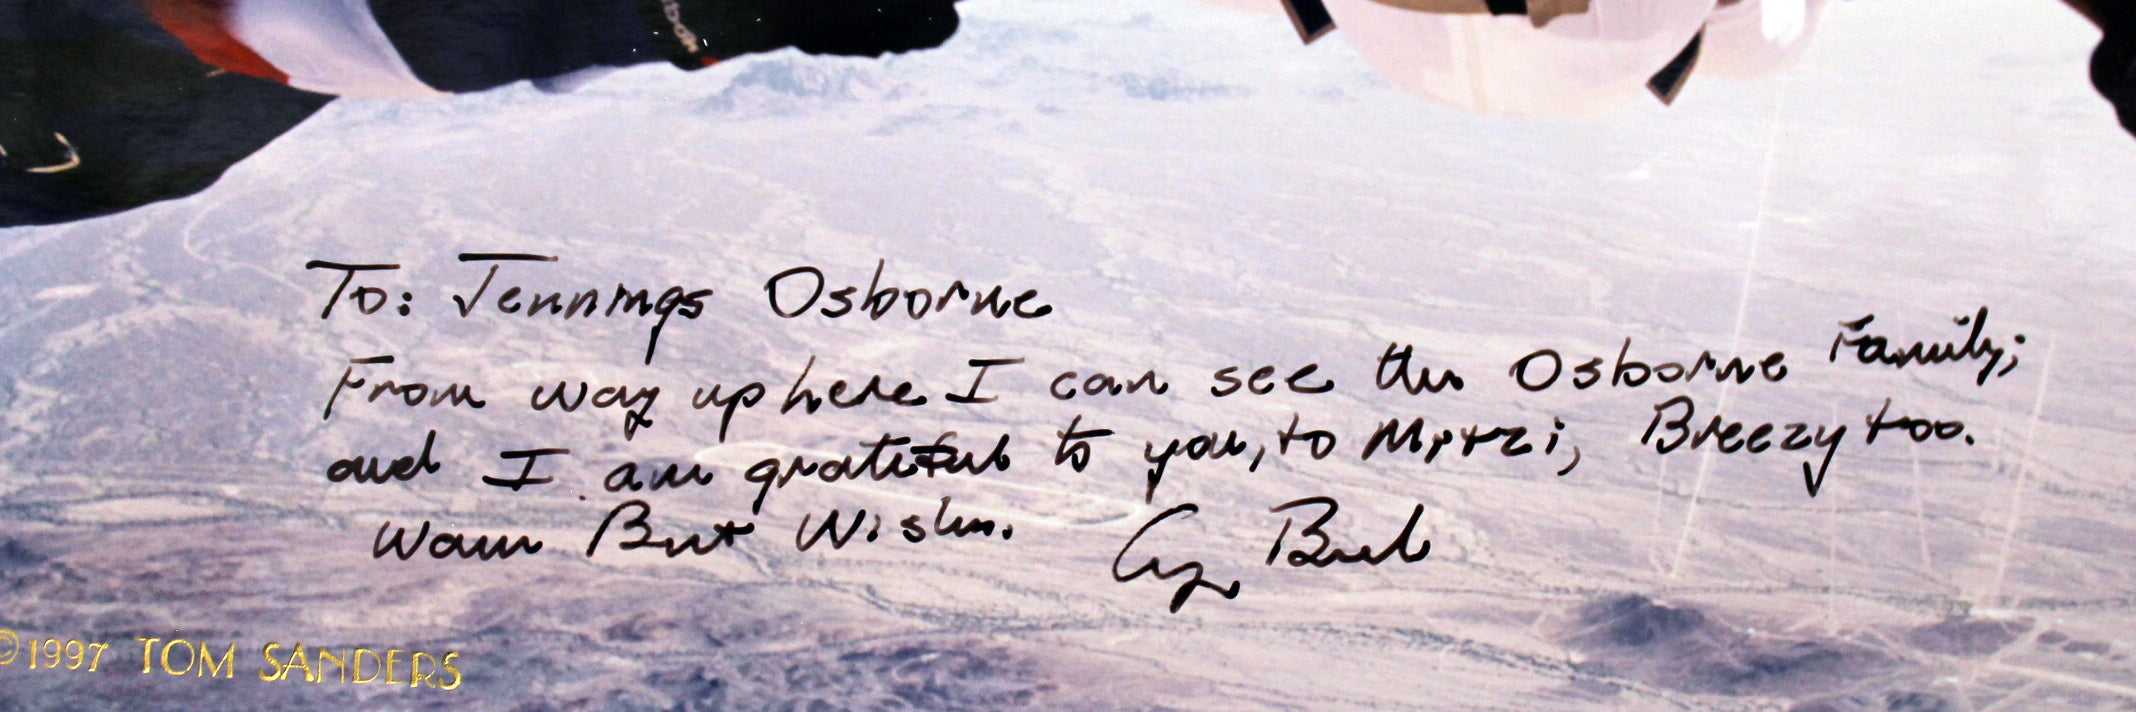 To: Jennings Osborne
From way up here I can see the Osborne Family;
and I am grateful to you, to Mitzi, Breezy too.
Warm Best Wishes. Gy Bush
©1997 TOM SANDERS